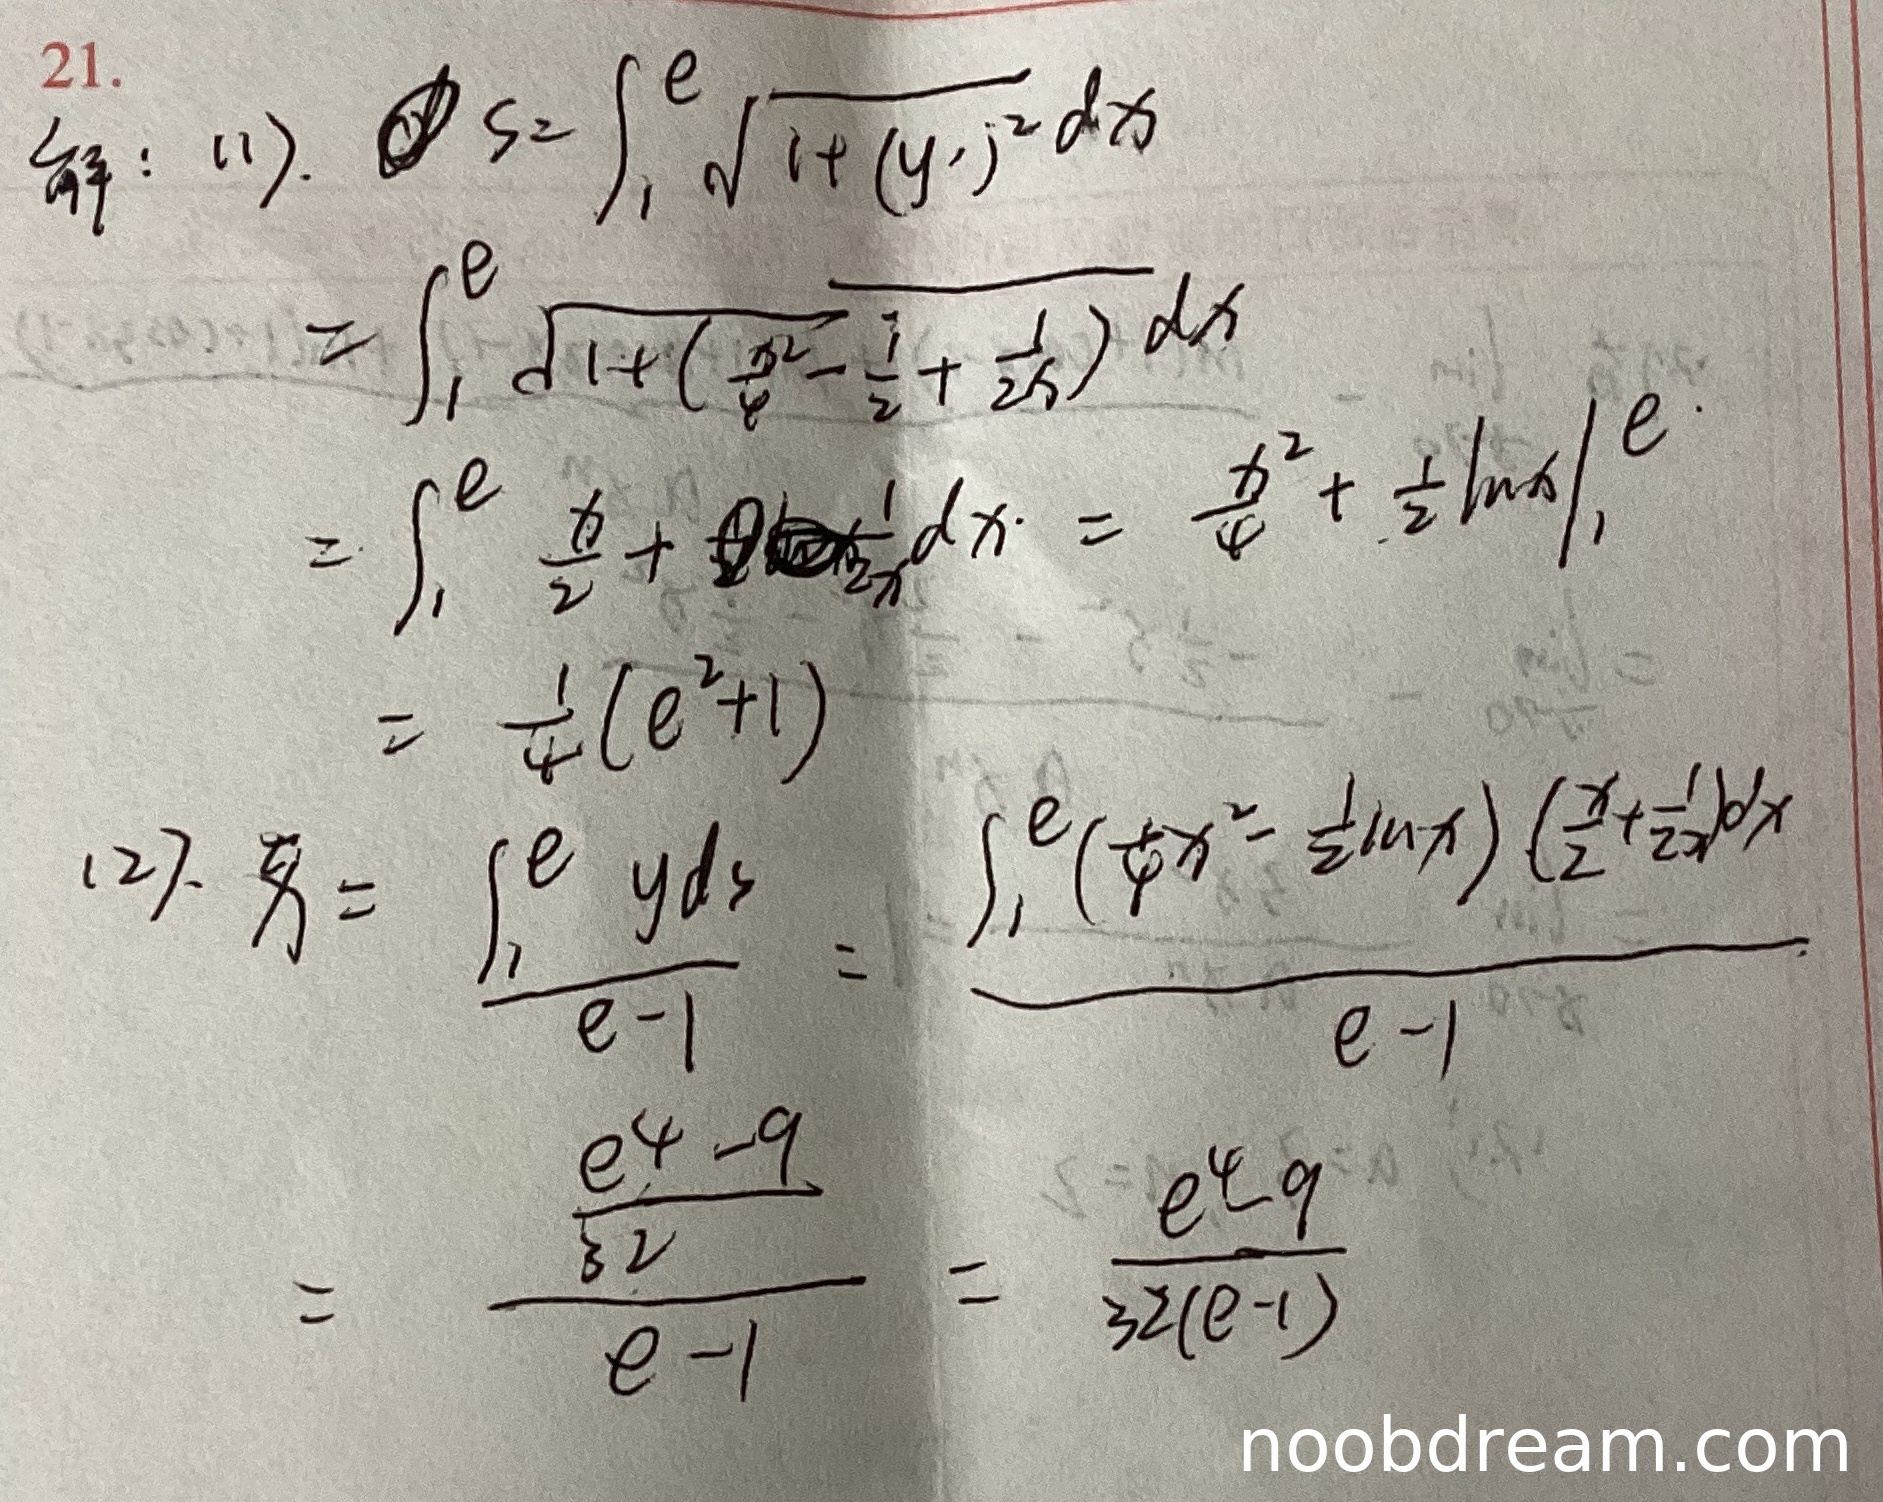 21.
解：(1). S = ∫₁^e √(1+(y')²) dx
= ∫₁^e √(1+(x²/4 - 1/2 + 1/2x)) dx
= ∫₁^e x/2 + 1/2x dx. = x²/4 + 1/2 lnx |₁^e.
= 1/4 (e²+1)
(2). ȳ = (∫₁^e y ds)/(e-1) = (∫₁^e (1/4 x² - 1/2 lnx) (x/2 + 1/2x) dx)/(e-1)
= ((e⁴-9)/32)/(e-1) = (e⁴-9)/(32(e-1))
noobdream.com